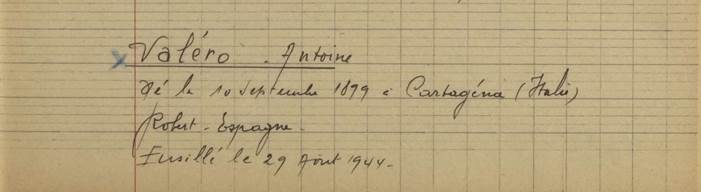 Valéro - Antoine
Né le 10 Septembre 1899 à Cartagéna (Italie)
Robert-Espagne.
Fusillé le 29 Août 1944-